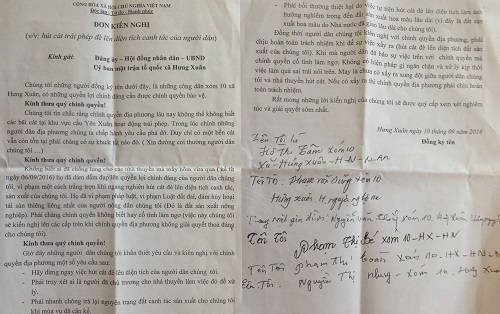 CỘNG HÒA XÃ HỘI CHỦ NGHĨA VIỆT NAM
Độc lập - Tự do - Hạnh phúc
ĐƠN KIẾN NGHỊ
(v/v: hút cát trái phép đè lên diện tích canh tác của người dân)
Kính gửi: Đảng ủy – Hội đồng nhân dân – UBND
Uỷ ban mặt trận tổ quốc xã Hưng Xuân
Chúng tôi những người đồng ký tên dưới đây, là những công dân xóm 10 xã
Hưng Xuân, có những quyền lợi chính đáng cần được chính quyền bảo vệ.
Kính thưa quý chính quyền!
Chúng tôi tin chắc rằng chính quyền địa phương lâu nay không thể không biết
các bãi cát tại khu vực cầu Yên Xuân hoạt động trái phép. Trong lúc chính những
người dân địa phương chúng ta chấp hành yêu cầu phá dỡ. Duy chỉ có một bến cát
vẫn còn tồn tại phải chăng có sự khuất tất nào đó. ( Xin đường coi thường người dân
chúng tôi ....)
Kính thưa quý chính quyền!
Không biết ai đã chống lưng cho các nhà thuyền mà mấy hôm vừa qua ( kể từ
ngày 06/09/2016) họ đã dám dẫm đạp lên quyền lợi chính đáng của người dân chúng
tôi, vi phạm một cách trắng trợn khi ngang nghiên hút cát đè lên diện tích canh tác,
sản xuất của chúng tôi. Họ đã vi phạm pháp luật, vi phạm Luật đất đai, dám hủy hoại
tài sản thiêng liêng nhất của người nông dân chúng tôi (Đó là đất sản xuất nông
nghiệp). Phải chăng chính quyền không biết hay cố tình làm ngơ (việc này chúng tôi
sẽ kiến nghị lên các cấp trên khi chính quyền địa phương không giải quyết thoả đáng
cho chúng tôi).
Kính thưa quý chính quyền!
Giờ đây những người dân chúng tôi khẩn thiết yêu cầu và kiến nghị với chính
quyền địa phương một số yêu cầu sau:
- Hãy dừng ngay việc hút cát đè lên diện tích canh tác của người dân chúng tôi.
- Phải truy xét ai là người đã chủ trương cho nhà thuyền làm việc đó để xử
lý.
- Phải nhanh chóng trả lại nguyên trạng đất canh tác sản xuất cho chúng tôi
khi mùa vụ đã cận kề.
- Phải bồi thường thiệt hại do việc tự tiện hút cát đè lên diện tích làm ảnh
hưởng nghiêm trọng đến đất sản xuất hoa màu lâu dài (vì đây là đất sản
xuất hoa màu do Nhà nước đã giao lâu dài cho chúng tôi).
Đồng thời người dân chúng tôi kiến nghị với chính quyền địa phương, phải
chịu hoàn toàn trách nhiệm khi để sự việc xảy ra (hút cát đè lên diện tích đất sản
xuất của chúng tôi). Khi mà người dân đã báo sự việc trên với chính quyền mà
chính quyền cố tình làm ngơ. Không có biện pháp gì ngăn chặn và xử lý kịp thời
việc làm quá sai trái nói trên. May là chưa có xẩy ra xung đột giữa người dân chúng
tôi và nhà thuyền hút cát. Nếu có xẩy ra thì chính quyền địa phương phải chịu hoàn
toàn trách nhiệm.
Rất mong những lời kiến nghị của chúng tôi sẽ được quý cấp xem xét nghiêm
túc và giải quyết sớm nhất.
Hưng Xuân ngày 10 tháng 09 năm 2016
Đồng ký tên.
Tên Tôi là
Hồ Thị Tâm xóm 10
Xã Hưng Xuân - H-N - N.AN
Tên Tôi: Phạm văn Dũng xóm 10
Hưng Xuân H. nguyên nghệ an
Thay mặt gia đình: Nguyễn văn xóm 10.
Tên Tôi Phạm Thị Bé xóm 10 - HX - HN
Tên Tôi phạm Thị loan xóm 10 - H-X-H-N
Tên Tôi. Nguyễn Thị Nhung - xóm 10. Hưng Xuân